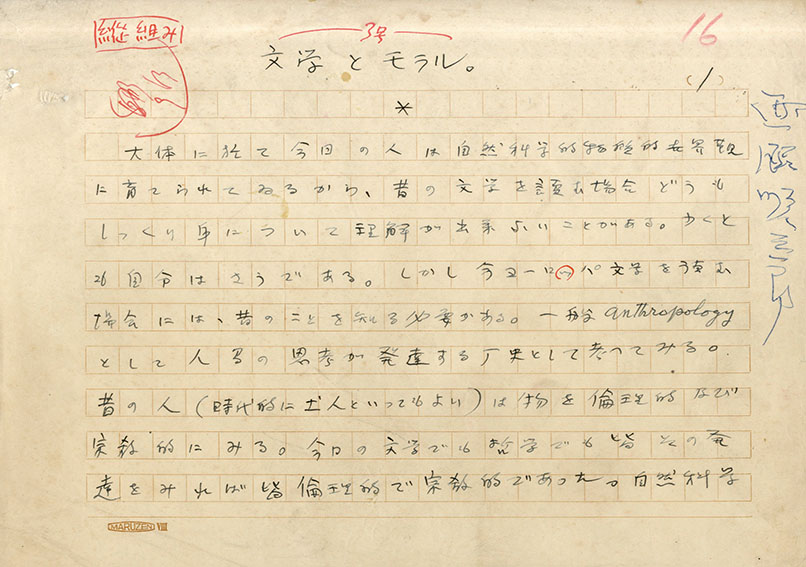 3号
16
文学とモラル。
(1)
*
大体に於て今日の人は自然科学的物理的世界観
に育てられてゐるから、昔の文学を読む場合どうも
しっくり身について理解が出来ないことがある。少くと
も自分はさうである。しかし今ヨーロッパ文学を読む
場合には、昔のことを知る必要がある。一般 anthropology
として人間の思考が発達する歴史として考へてみる。
昔の人(時代的に土人といってもよい)は物を倫理的及び
宗教的にみる。今日の文学でも哲学でも皆その発
達をみれば皆倫理的で宗教的であった。自然科学
西脇順三郎
MARUZEN VIII